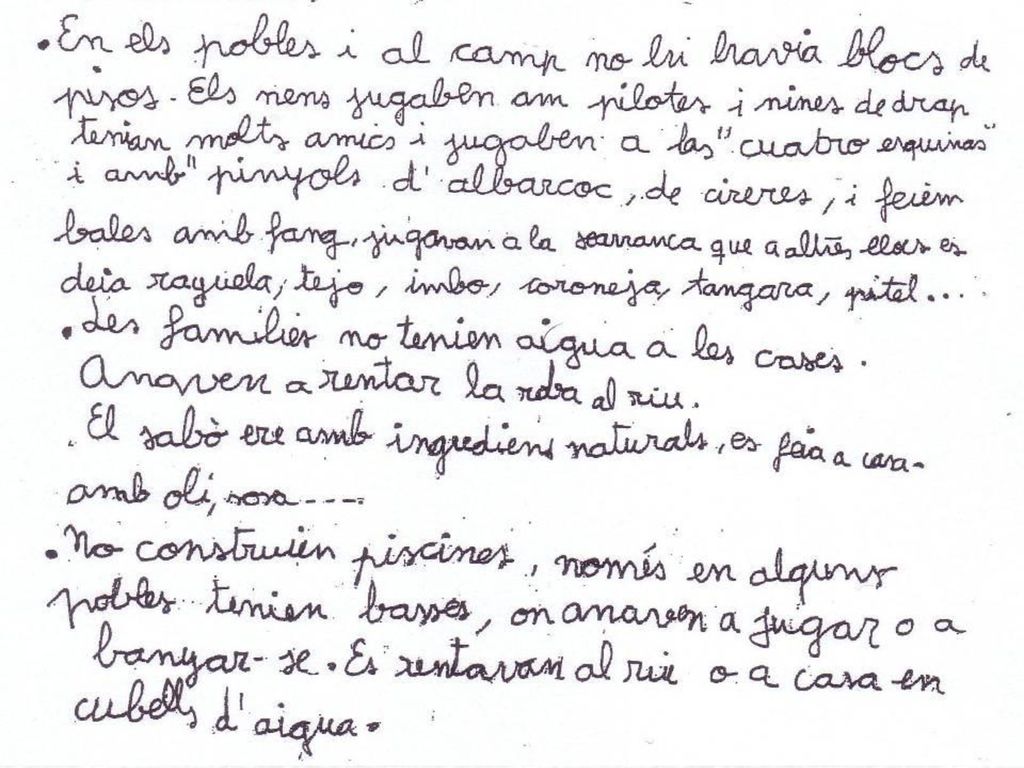 • En els pobles i al camp no hi havia blocs de
pisos. Els nens jugaben am pilotes i nines de drap
tenian molts amics i jugaben a las "cuatro esquinas"
i amb "pinyols d'albarcoc, de cireres, i feiem
bales amb fang, jugavan a la xarranca que a altres llocs es
deia rayuela, tejo, imbo, coroneja, tangara, pitel....
• Les families no tenien aigua a les cases.
Anaven a rentar la roba al riu.
. El sabò ere amb ingrediens naturals, es feia a casa
amb oli, sosa ----
• No construien piscines, només en alguns
pobles tenien basses, on anaven a jugar o a
banyar-se. Es rentavan al riu o a casa en
cubells d'aigua.